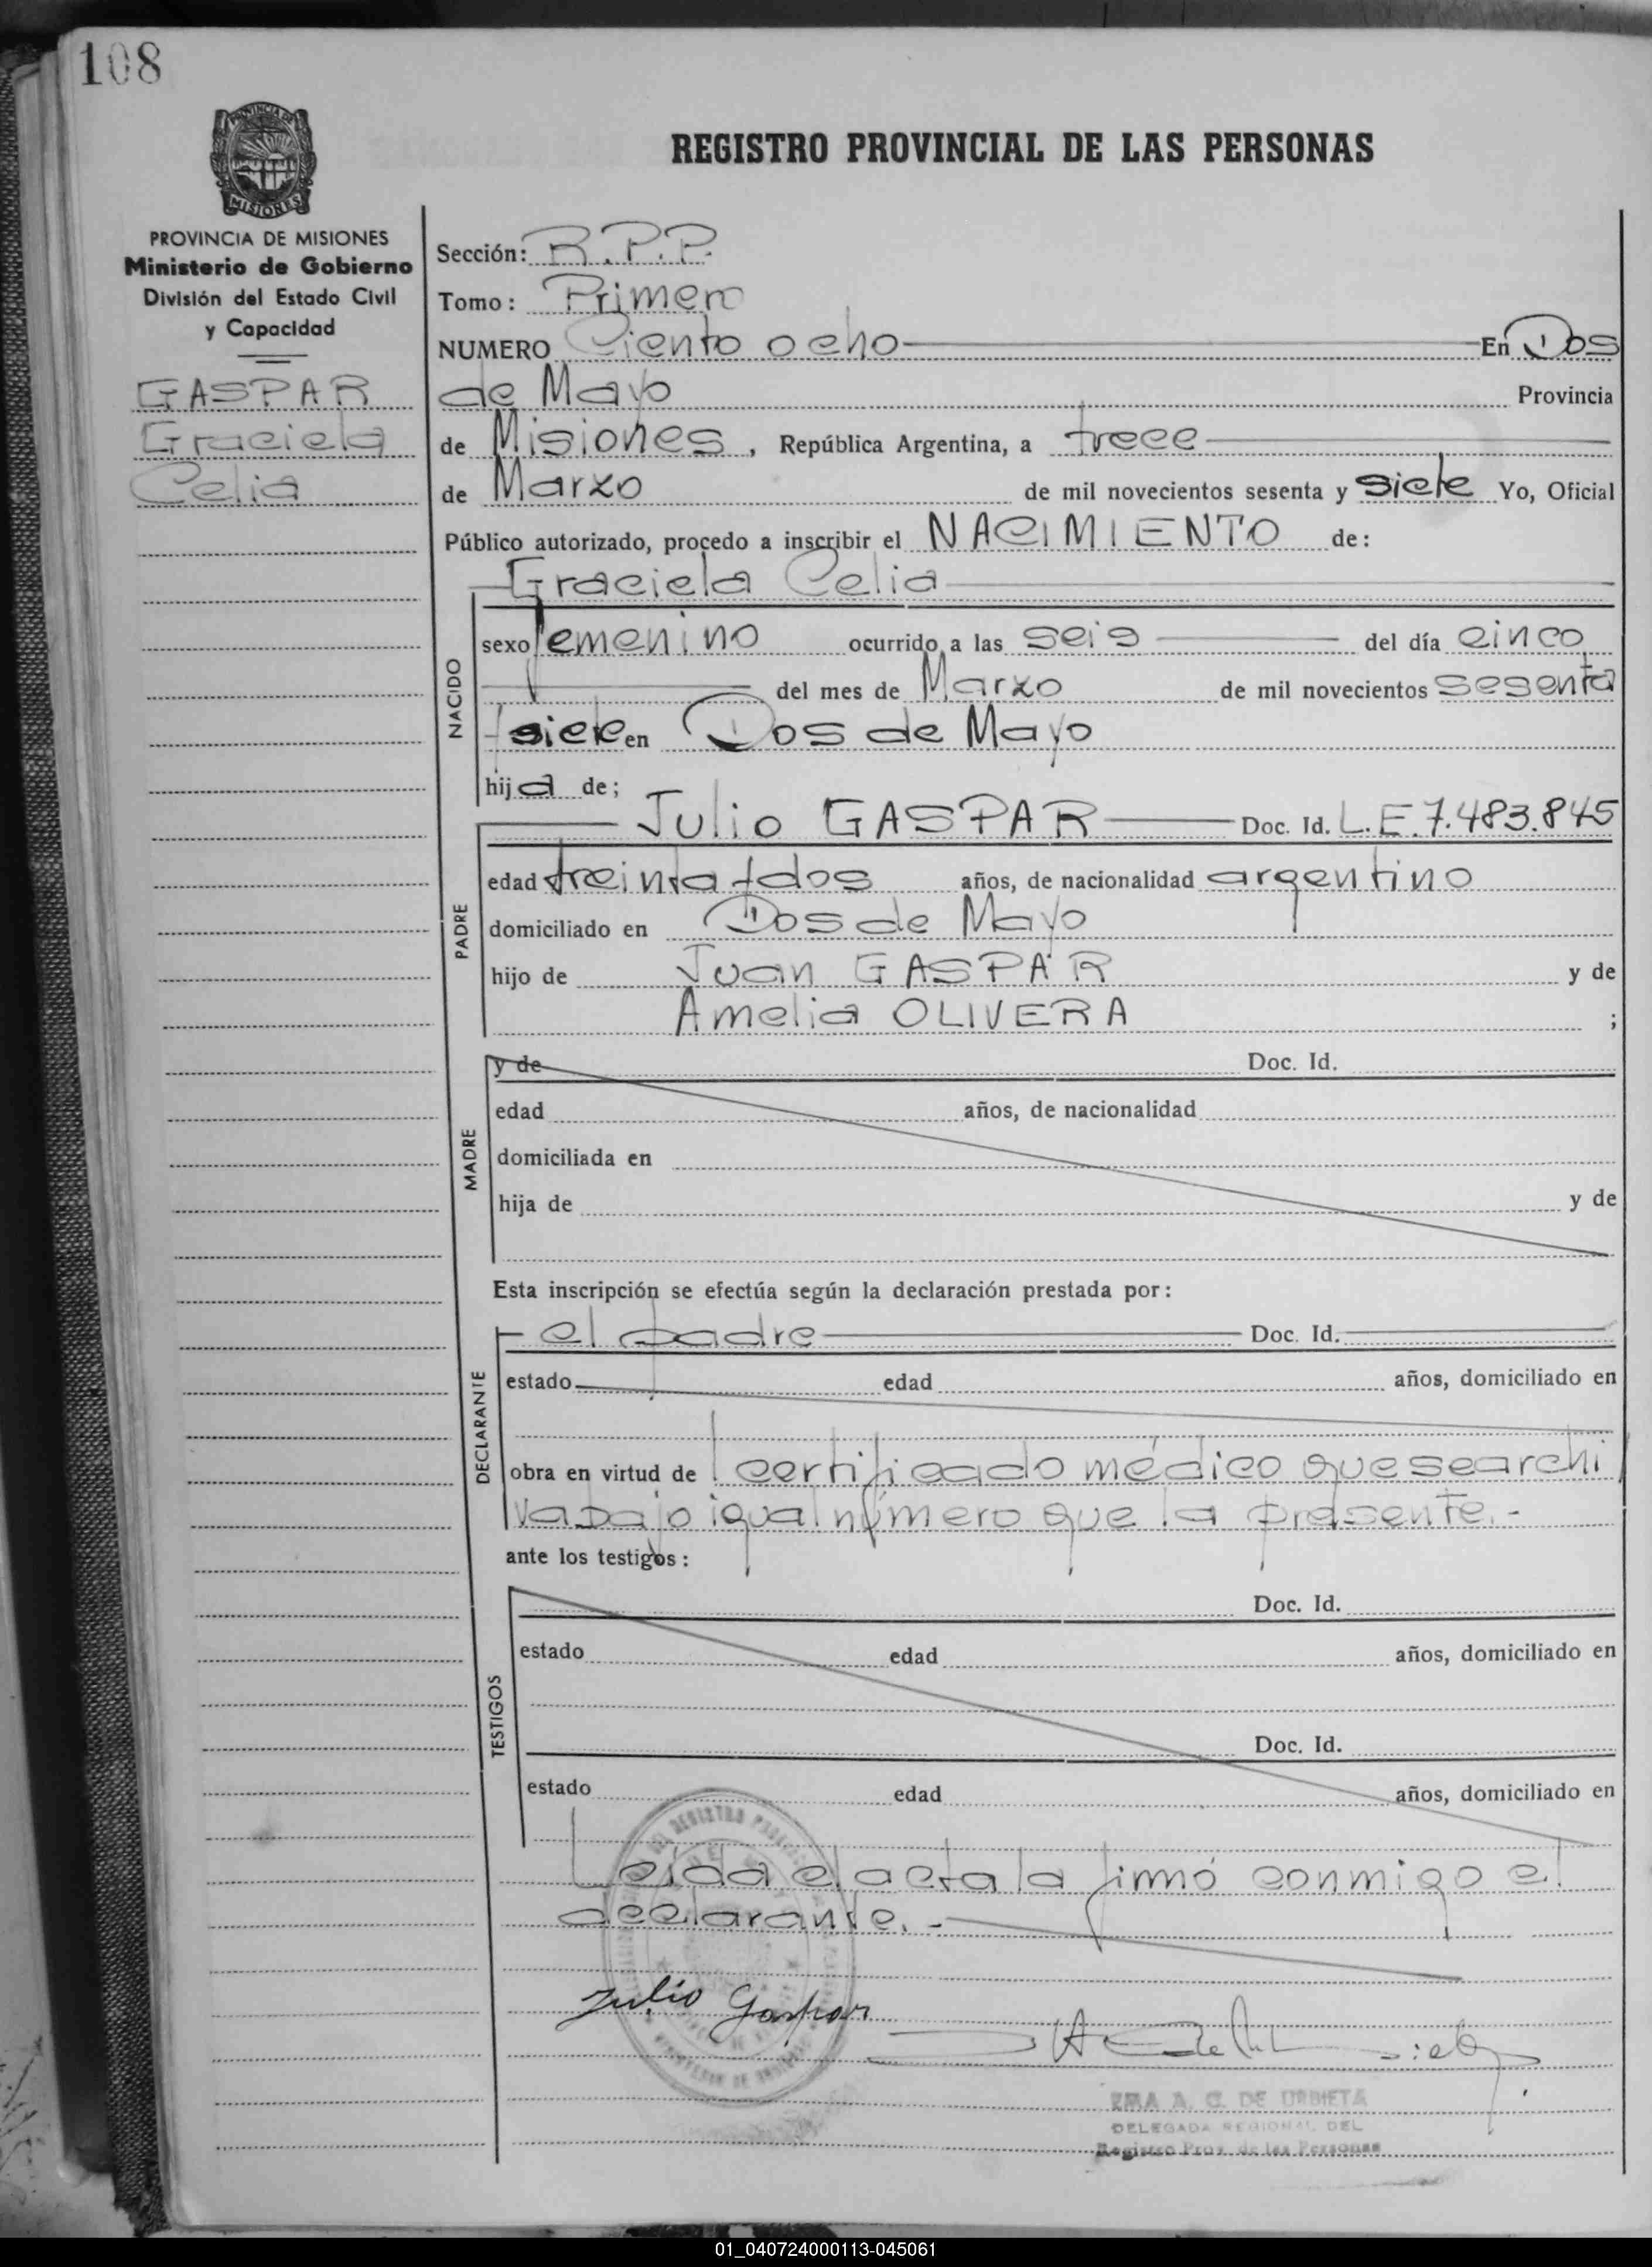 108
REGISTRO PROVINCIAL DE LAS PERSONAS
PROVINCIA DE MISIONES
MISIONES
PROVINCIA DE MISIONES
Ministerio de Gobierno
División del Estado Civil
y Capacidad
GASPAR
Graciela
Celia
Sección: R.P.P.
Tomo: Primero
NUMERO Ciento ocho En Dos
de Mayo Provincia
de Misiones, República Argentina, a trece
de Marzo de mil novecientos sesenta y siete Yo, Oficial
Público autorizado, procedo a inscribir el NACIMIENTO de:
Graciela Celia
NACIDO
sexo femenino ocurrido a las seis del día cinco
del mes de Marzo de mil novecientos sesenta
y siete en Dos de Mayo
hija de;
PADRE
Julio GASPAR Doc. Id. L.E. 7.483.845
edad treinta y dos años, de nacionalidad argentino
domiciliado en Dos de Mayo
hijo de Juan GASPAR y de
Amelia OLIVERA ;
MADRE
y de Doc. Id.
edad años, de nacionalidad
domiciliada en
hija de y de
Esta inscripción se efectúa según la declaración prestada por:
DECLARANTE
el padre Doc. Id.
estado edad años, domiciliado en
obra en virtud de certificado médico que se archi
va bajo igual número que la presente.-
ante los testigos:
TESTIGOS
Doc. Id.
estado edad años, domiciliado en
Doc. Id.
estado edad años, domiciliado en
Leída el acta la firmó conmigo el
declarante.-
Julio Gaspar
A. C. DE URBIETA
DELEGADA REGIONAL DEL
Registro Prov. de las Personas
01_040724000113-045061